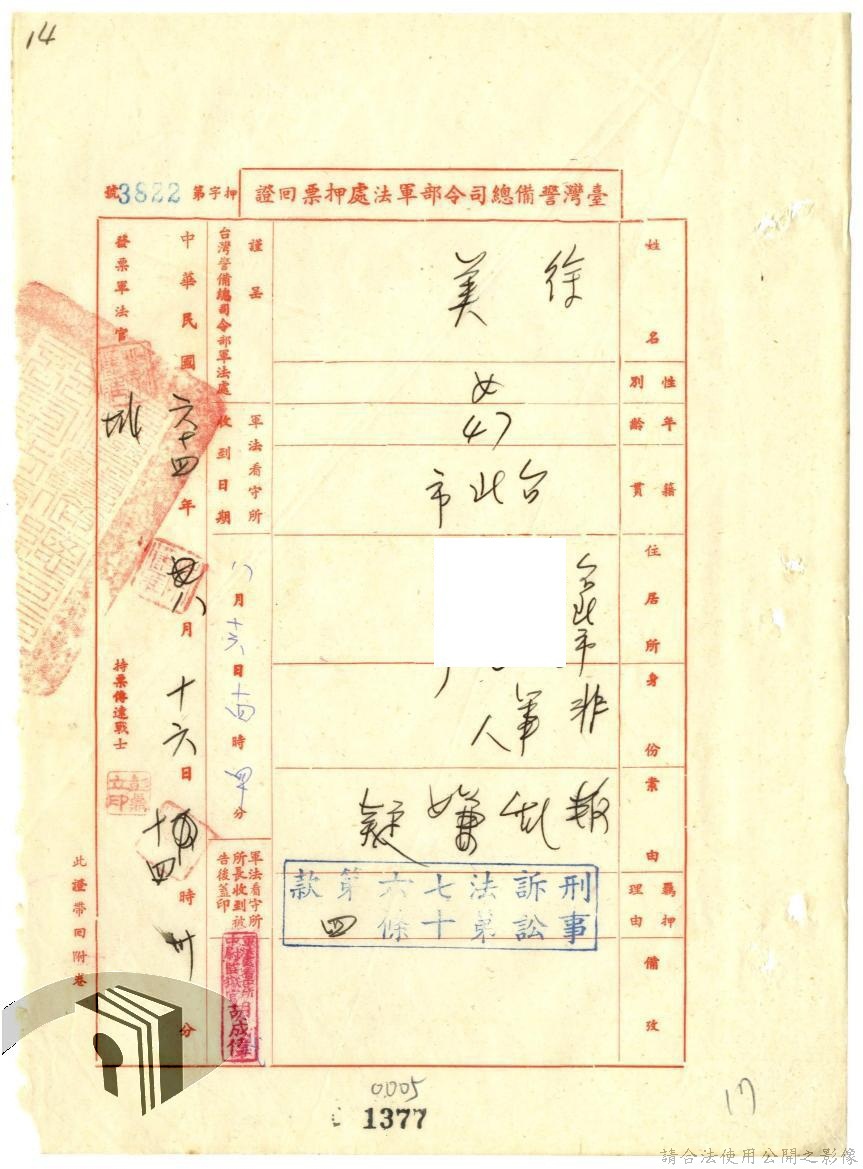 14
臺灣警備總司令部軍法處押票回證
押字第3822號
姓名
徐美
性別
女
年齡
47
籍貫
台北市
住居所
台北市
身份
非軍人
案由
叛亂嫌疑
羈押理由
刑事訴訟法第七十六條第四款
備攷
謹呈
台灣警備總司令部軍法處
軍法看守所收到日期
八月十六日十四時卅分
軍法看守所所長收到被告後蓋印
中華民國六十四年八月十六日十四時卅分
發票軍法官
持票傳達戰士
此證帶回附卷
0005
1377
17
請合法使用公開之影像